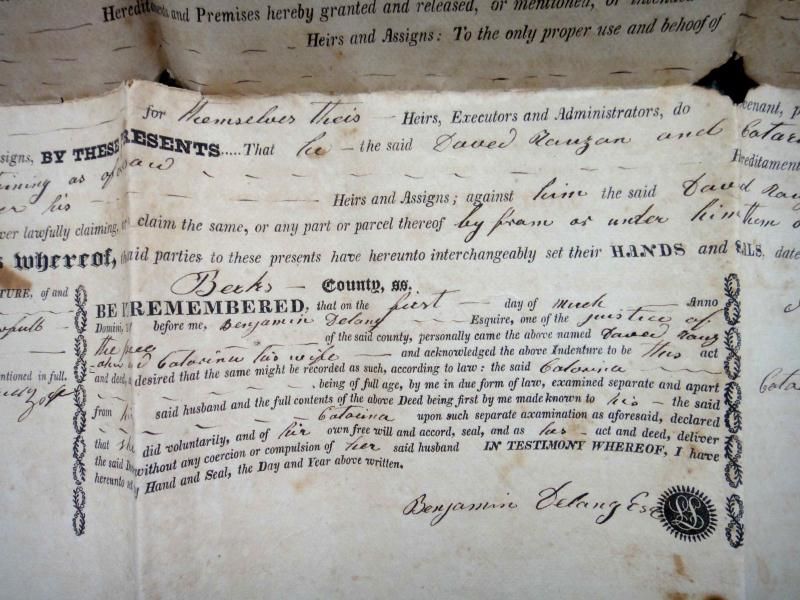 Hereditaments and Premises hereby granted and released, or mentioned, or intended
Heirs and Assigns: To the only proper use and behoof of
for themselves theis Heirs, Executors and Administrators, do
venant, p
signs, BY THESE PRESENTS.....That he the said Daved Rauzan and
Catar
ining as aforesaid
Hereditament
er his Heirs and Assigns; against him the said Daved Rau
ver lawfully claiming, or claim the same, or any part or parcel thereof by fram or under him them o
s whereof, the said parties to these presents have hereunto interchangeably set their HANDS and SEALS, date
Beeks County, ss.
TURE, of and
BE IT REMEMBERED, that on the first day of March Anno
Domini, before me, Benjamin Delang Esquire, one of the justice of
the peace of the said county, personally came the above named Daved Rauz
and Catarina his wife and acknowledged the above Indenture to be this act
and deed, desired that the same might be recorded as such, according to law: the said Catarina
entioned in full.
being of full age, by me in due form of law, examined separate and apart
from his said husband and the full contents of the above Deed being first by me made known to his the said
Catarina upon such separate axamination as aforesaid, declared
that she did voluntarily, and of hir own free will and accord, seal, and as his act and deed, deliver
the said Deed without any coercion or compulsion of her said husband IN TESTIMONY WHEREOF, I have
hereunto set my Hand and Seal, the Day and Year above written.
Benjamin Delang Esq
LS